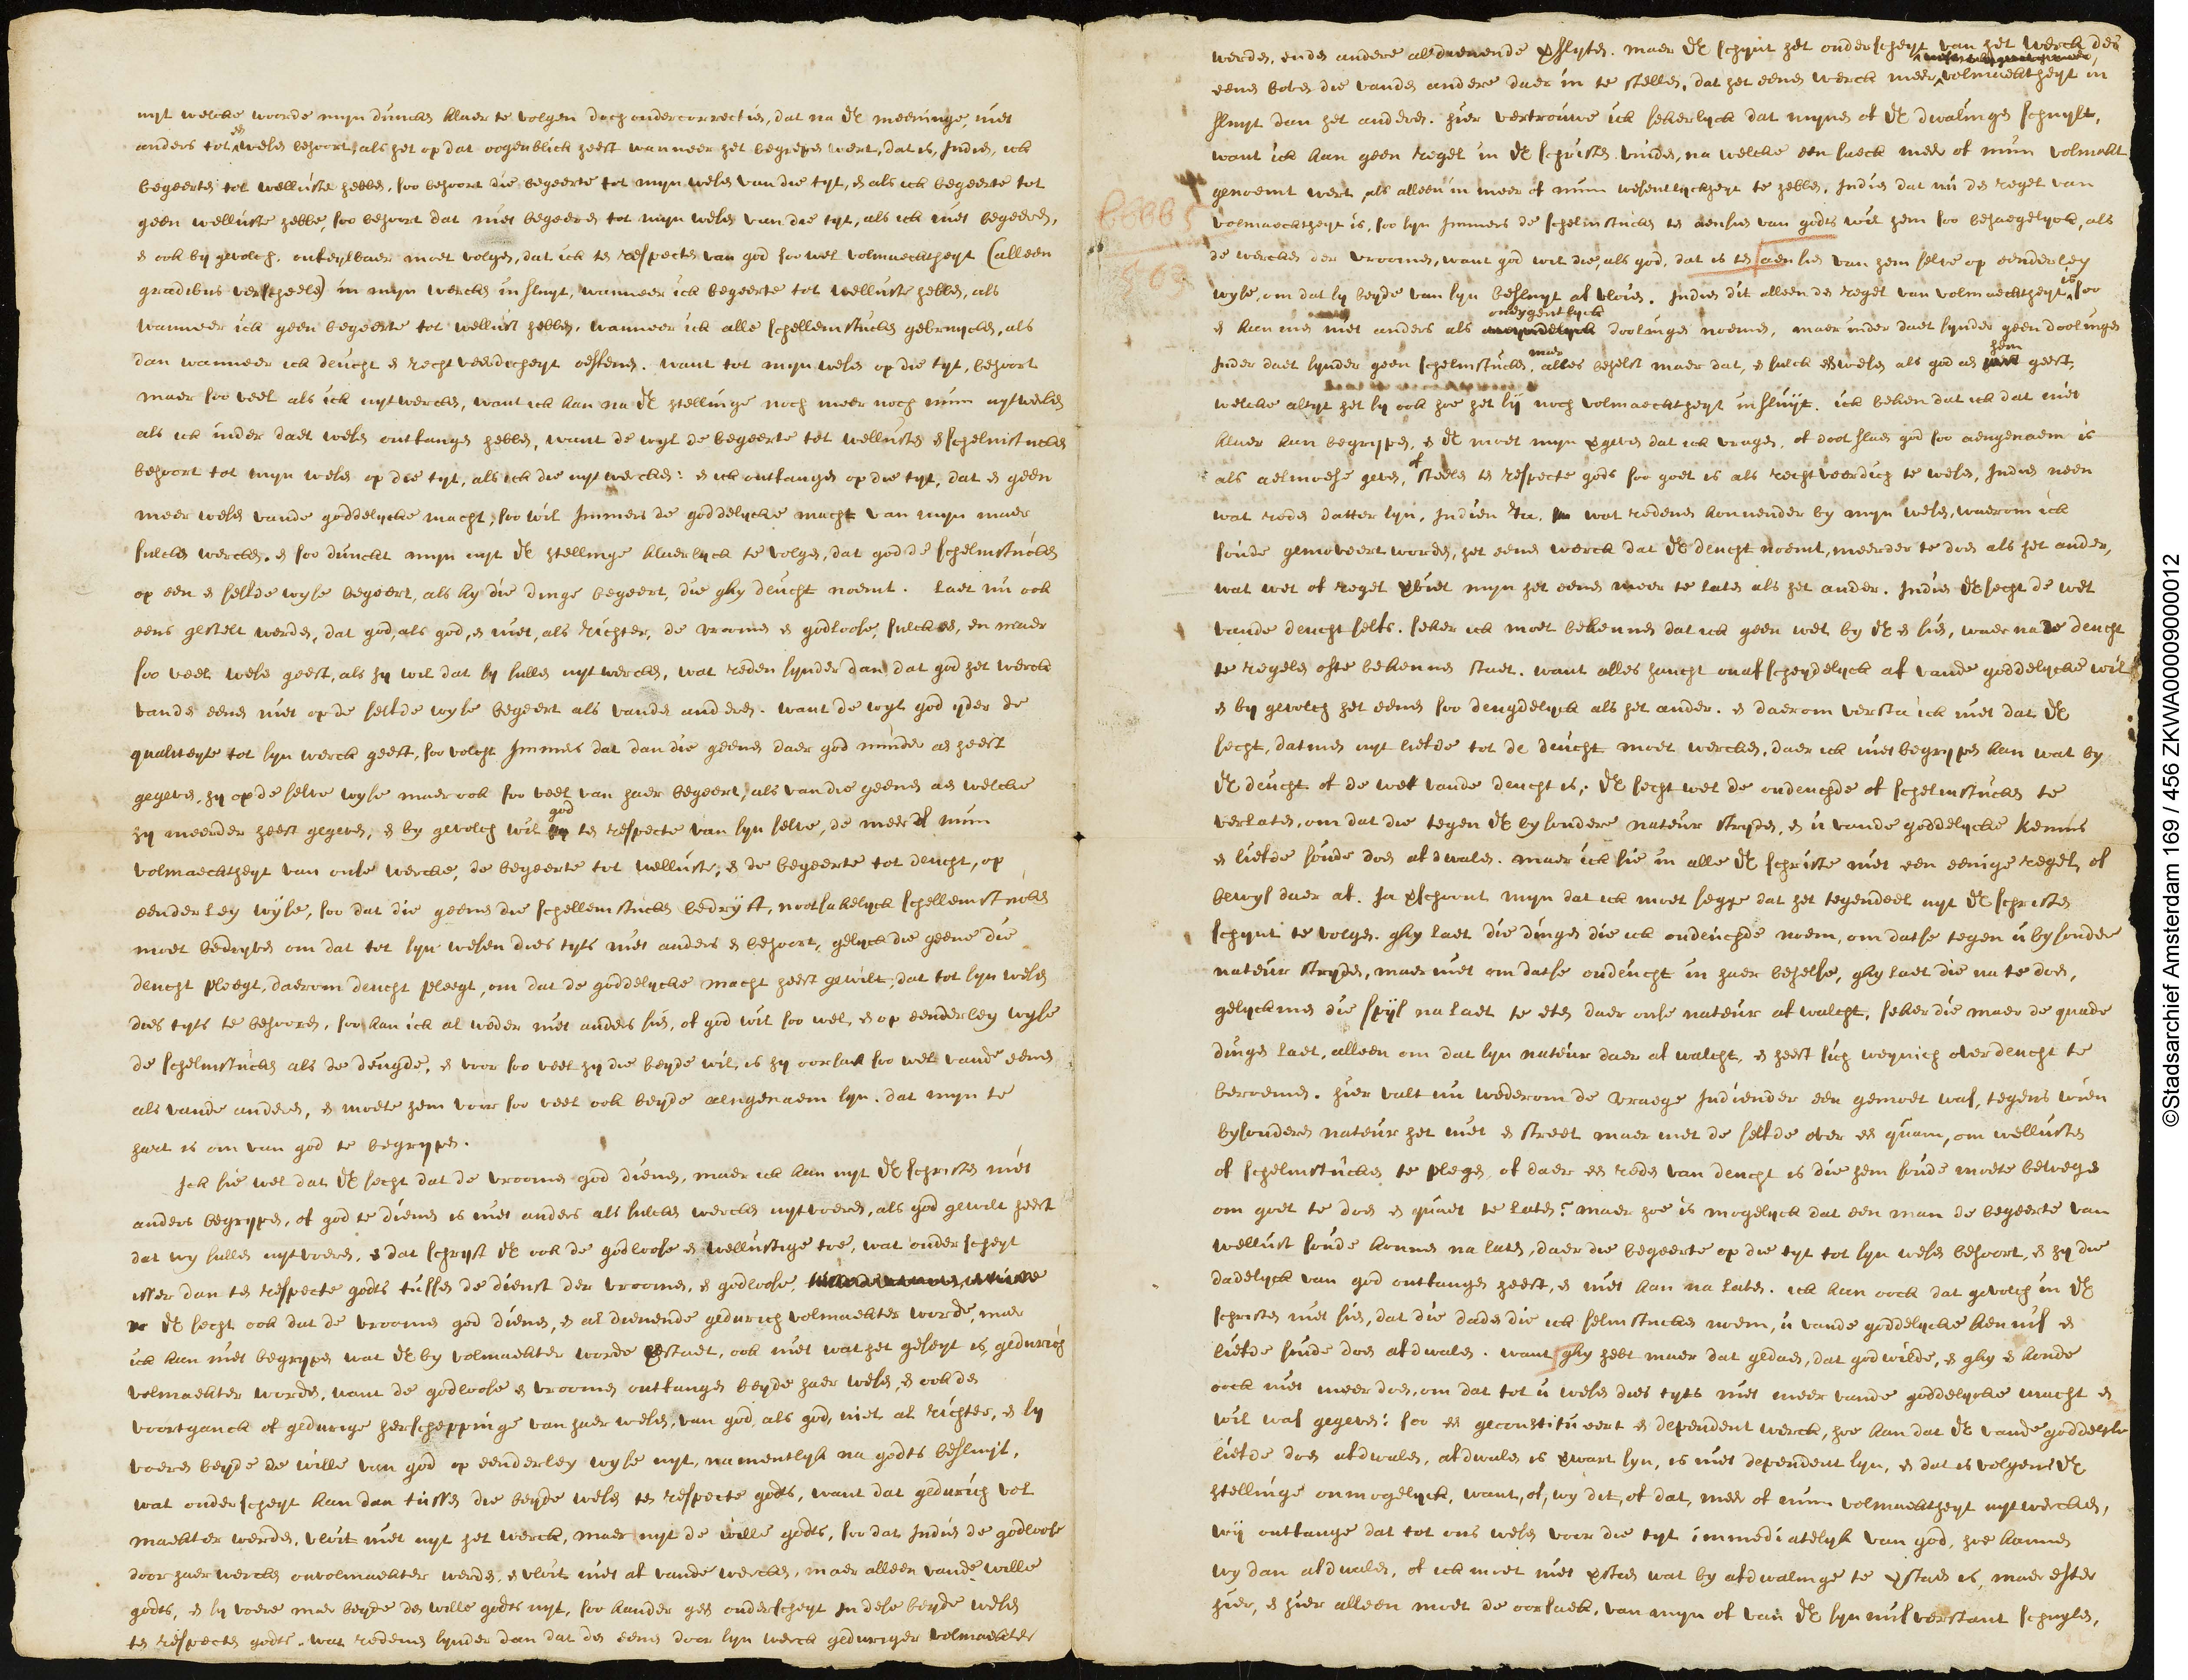 uyt welcke woorde myn dúncken klaer te volgen doch onder correctie, dat na Ul meeninge, niet
anders tot een wesen behoort, als het op dat oogenblick heeft wanneer het begrepen wert, dat is, Indien, ick
begeerten tot wellúste hebben, soo behoort die begeerte tot myn wesen van die tyt, en als ick begeerte tot
geen wellúste hebbe, soo behoort dat niet begeeren tot myn wesen van die tyt, als ick niet begeeren,
en ook by gevolch, onfeylbaer moet volgen, dat ick ten respecten van god soo wel volmaecktheyt (alleen
gradibus verscheelen) in myn wercken insluyt, wanneer ick begeerte tot wellúste hebben, als
wanneer ick geen begeerte tot wellúst hebben, wanneer ick alle schellemstucken gebruycken, als
dan wanneer ick deucht en rechtveerdicheyt oeffenen. want tot myn wesen op die tyt, behoort
maer soo veel als ick uytwercken, want ick kan na Ul stellinge noch meer noch min uytwercken
als ick inder daet wesen ontfangen hebben, want de wyl de begeerte tot wellústen en schelmstucken
behoort tot myn wesen op die tyt, als ick die uytwercken: en ick ontfangen op die tyt, dat en geen
meer wesen vande goddelycke macht, soo wil Immers de goddelycke macht van myn maer
sulcken wercken. en soo dunckt myn uyt Ul stellinge klaerlyck te volgen, dat god de schelmstúcken
op een en selfde wyse begeert, als hy die dinge begeert, die ghy deucht noemt. Laet nu ook
eens gestelt werden, dat god, als god, en niet, als Richter, de vroomen en godloose, sulck een, en maer
soo veel wesen geeft, als hy wil dat sy sullen uytwercken, wat reden synder dan dat god het werck
vanden eenen niet op de selfde wyse begeert als vanden anderen. want de wyl god yder de
qualiteyte tot syn werck geeft, soo volcht Immers dat dan die geenen daer god minder aen heeft
gegeven, hy op de selve wyse maer ook soo veel van haer begeert, als van die geenen aen welcke
hy meender heeft gegeven, en by gevolch wil god ten respecte van syn selve, de meer of min
volmaecktheyt van onse wercke, de begeerte tot wellúste, en de begeerte tot deucht, op
eenderley wyse, soo dat die geenen die schellemstucken bedryft, nootsakelyck schellemstucken
moet bedryven om dat tot syn wesen dies tyts niet anders en behoort, gelyck die geene die
deucht pleegt, daerom deucht pleegt, om dat de goddelycke macht heeft gewilt, dat tot syn wesen
dies tyts te behooren, soo kan ick al weder niet anders sien, of god wil soo wel, en op eenderley wyse
de schelmstúcken als de deúgde, en voor soo veel hy die beyde wil, is hy oorsaek soo wel vande eenen
als vande anderen, en moete hem voor soo veel ook beyde aengenaem syn. dat myn te
hart is om van god te begrypen.
Ick sie wel dat Ul secht dat de vroomen god dienen, maer ick kan uyt Ul schriften niet
anders begrypen, of god te dienen is niet anders als sulcken wercken uytvoeren, als god gewilt heeft
dat wy sullen uytvoeren, en dat schryft Ul ook de godloose en wellústige toe, wat onderscheyt
isser dan ten respecte godts túschen de dienst der vroomen, en godloose,
Ul secht ook dat de vroomen god dienen, en al dienende gedúrich volmaekter worde, maer
ick kan niet begrypen wat Ul by volmaekter worde verstaet, ook niet wat het geseyt is, gedúrich
volmaekter worden, want de godloose en vroomen ontfangen beyde haer wesen, en ook den
voortganck of gedúrige herscheppinge van haer wesen, van god, als god, niet als richter, en sy
voeren beyde de wille van god op eenderley wyse uyt, namentlyk na godts besluyt,
wat onderscheyt kan dan tússen die beyde wesen ten respecte godts, want dat gedúrich vol
maekter werden, vloit niet uyt het werck, maer uyt de wille godts, soo dat Indien de godloose
door haer wercken onvolmaekter werden, en vloit niet af vande wercken, maer alleen vande wille
godts, en sy voere maer beyde den wille godts uyt, soo kander geen onderscheyt In dese beyde wesen
ten respecten godts. wat redenen synder dan dat den eenen door syn werck geduriger volmaekter
werden, ende andere al dienende verslyten. maer Ul schynt het onderscheyt van het werck des
eenen boven die vanden andere daer in te stellen, dat het eenen werck meer volmaektheyt in
sluyt dan het anderen. hier vertroúwe ick sekerlyck dat mynen of Ul dwalingen schuylt,
want ick kan geen regel in Ul schriften vinden, na welcke een saeck meer of min volmakt
genoemt wert, als alleen in meer of min wesentlyckheyt te hebben. Indien dat nú den regel van
volmaecktheyt is, soo syn Immers de schelmstúcken ten aensien van godts wil hem soo behaegelyck, als
de wercken der vroomen, want god wil die, als god, dat is ten aensien van hem selve op eenderley
wyse, om dat sy beyde van syn besluyt af vloien. Indien dit alleen den regel van volmaecktheyt is, soo
en kan men niet anders als oneygentlyck doolingen noemen, maer inder daet synder geen doolingen
Inder daet synder geen schelmstucken, maer alles behelst maer dat, en sulck een wesen als god aen hem geeft,
welcke altyt het sy ook hoe het sij noch volmaecktheyt inslúyt. ick beken dat ick dat niet
klaer kan begrypen, en Ul moet myn vergeven dat ick vragen, of doot slaen god soo aengenaem is
als aelmoese geven, of steelen ten respecte gods soo goet is als rechtveerdich te wesen, Indien neen
wat reden datter syn, Indien Ja, wat redenen konnender by myn wesen, waerom ick
soúde gemoveert worden, het eenen werck dat Ul deucht noemt, meerder te doen als het ander,
wat wet of regel verbiet myn het eenen meer te laten als het ander. Indien Ul secht de wet
vande deucht selfs. seker ick moet bekennen dat ick geen wet by Ul en sien, waer na de deucht
te regelen ofte bekennen staet. want alles hancht onafscheydelyck af vande goddelycke wil
en by gevolch het eenen soo deugdelyck als het ander. en daerom versta ick niet dat Ul
secht, datmen uyt liefde tot de deúcht moet wercken, daer ick niet begrypen kan wat by
Ul deucht of de wet vande deucht is. Ul secht wel de ondeuchde of schelmstucken te
verlaten, om dat die tegen Ul bysondere nateur stryden, en ú vande goddelycke kennis
en liefde soúde doen afdwalen. maer ick sie in alle Ul schrifte niet een eenige regel, of
bewys daer af. Ja verschoont myn dat ick moet segge dat het tegendeel uyt Ul schriften
schynt te volgen. ghy laet die dingen die ick ondeuchde noem, om datse tegen ú bysonder
nateúr stryden, maer niet om datse ondeúcht in haer behelse, ghy laet die na te doen,
gelyckmen die spijs na laet te eten daer onse nateúr af walcht, seker die maer de quade
dingen laet, alleen om dat syn nateúr daer af walcht, en heeft sich weynich over deucht te
beroemen. hier valt nu wederom de vraege Indiender een gemoet was, tegens wien
bysonderen nateúr het niet en street maer met de selfde over een quam, om wellústen
of schelmstúcken te plegen, of daer een reden van deucht is die hem soúde moete bewegen
om goet te doen en quaet te laten? maer hoe is mogelyck dat een man de begeerte van
wellust soúde konnen na laten, daer die begeerte op die tyt tot syn wesen behoort, en hy die
dadelyck van god ontfangen heeft, en niet kan na laten. ick kan oock dat gevolch in Ul
schriften niet sien, dat die daden die ick selmstucken noem, ú vande goddelycke kennis en
liefde soúde doen afdwalen. want ghy hebt maer dat gedaen, dat god wilde, en ghy en konde
oock niet meer doen, om dat tot ú wesen dies tyts niet meer vande goddelycke macht en
wil was gegeven: soo een geconstitueert en dependent werck, hoe kan dat Ul vande goddelycke
liefde doen afdwalen, afdwalen is verwart syn, is niet dependent syn, en dat is volgens Ul
stellinge onmogelyck, want, of, wy dit, of dat, meer of min volmaektheyt uytwercken,
wij ontfange dat tot ons wesen voor die tyt immediatelyk van god, hoe konnen
wy dan afdwalen, of ick moet niet verstaen wat by afdwalinge te verstaen is, maer efter
hier, en hier alleen moet de oorsaek, van myn of van Ul syn misverstant schuylen,
©Stadsarchief Amsterdam 169 / 456 ZKWA00009000012